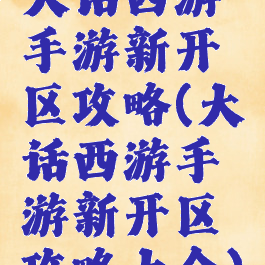 大话西游
手游新开
区攻略(大
话西游手
游新开区
攻略大全)